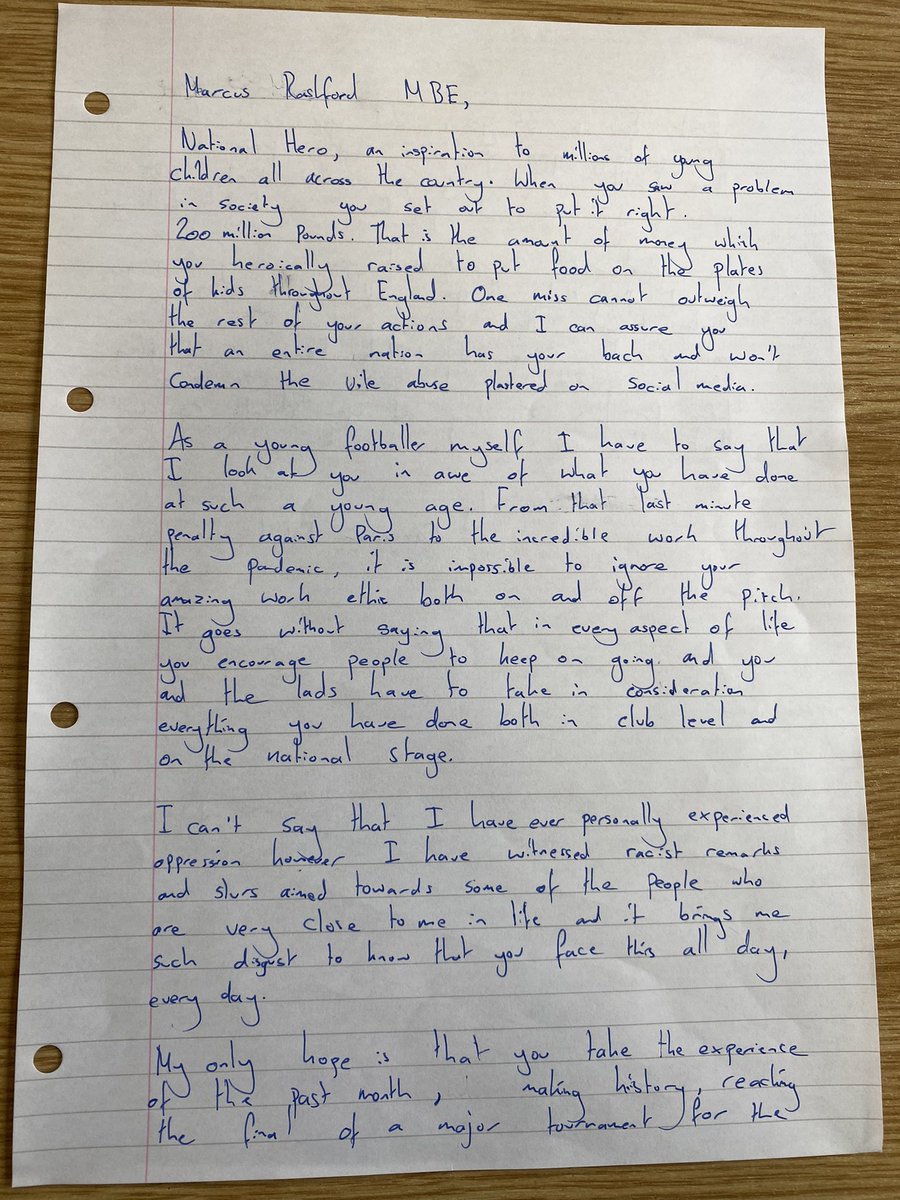 Marcus Rashford MBE,
National Hero, an inspiration to millions of young
children all across the country. When you saw a problem
in society you set out to put it right.
200 million Pounds. That is the amount of money which
you heroically raised to put food on the plates
of kids throughout England. One miss cannot outweigh
the rest of your actions and I can assure you
that an entire nation has your back and won't
Condemn the vile abuse plastered on social media.
As a young footballer myself I have to say that
I look at you in awe of what you have done
at such a young age. From that last minute
penalty against Paris to the incredible work throughout
the pandemic, it is impossible to ignore your
amazing work ethic both on and off the pitch.
It goes without saying that in every aspect of life
you encourage people to keep on going and you
and the lads have to take in consideration
everything you have done both in club level and
on the national stage.
I can't say that I have ever personally experienced
oppression however I have witnessed racist remarks
and slurs aimed towards some of the people who
are very close to me in life and it brings me
such disgust to know that you face this all day,
every day.
My only hope is that you take the experience
of the past month, making history, reaching
the final of a major tournament for the